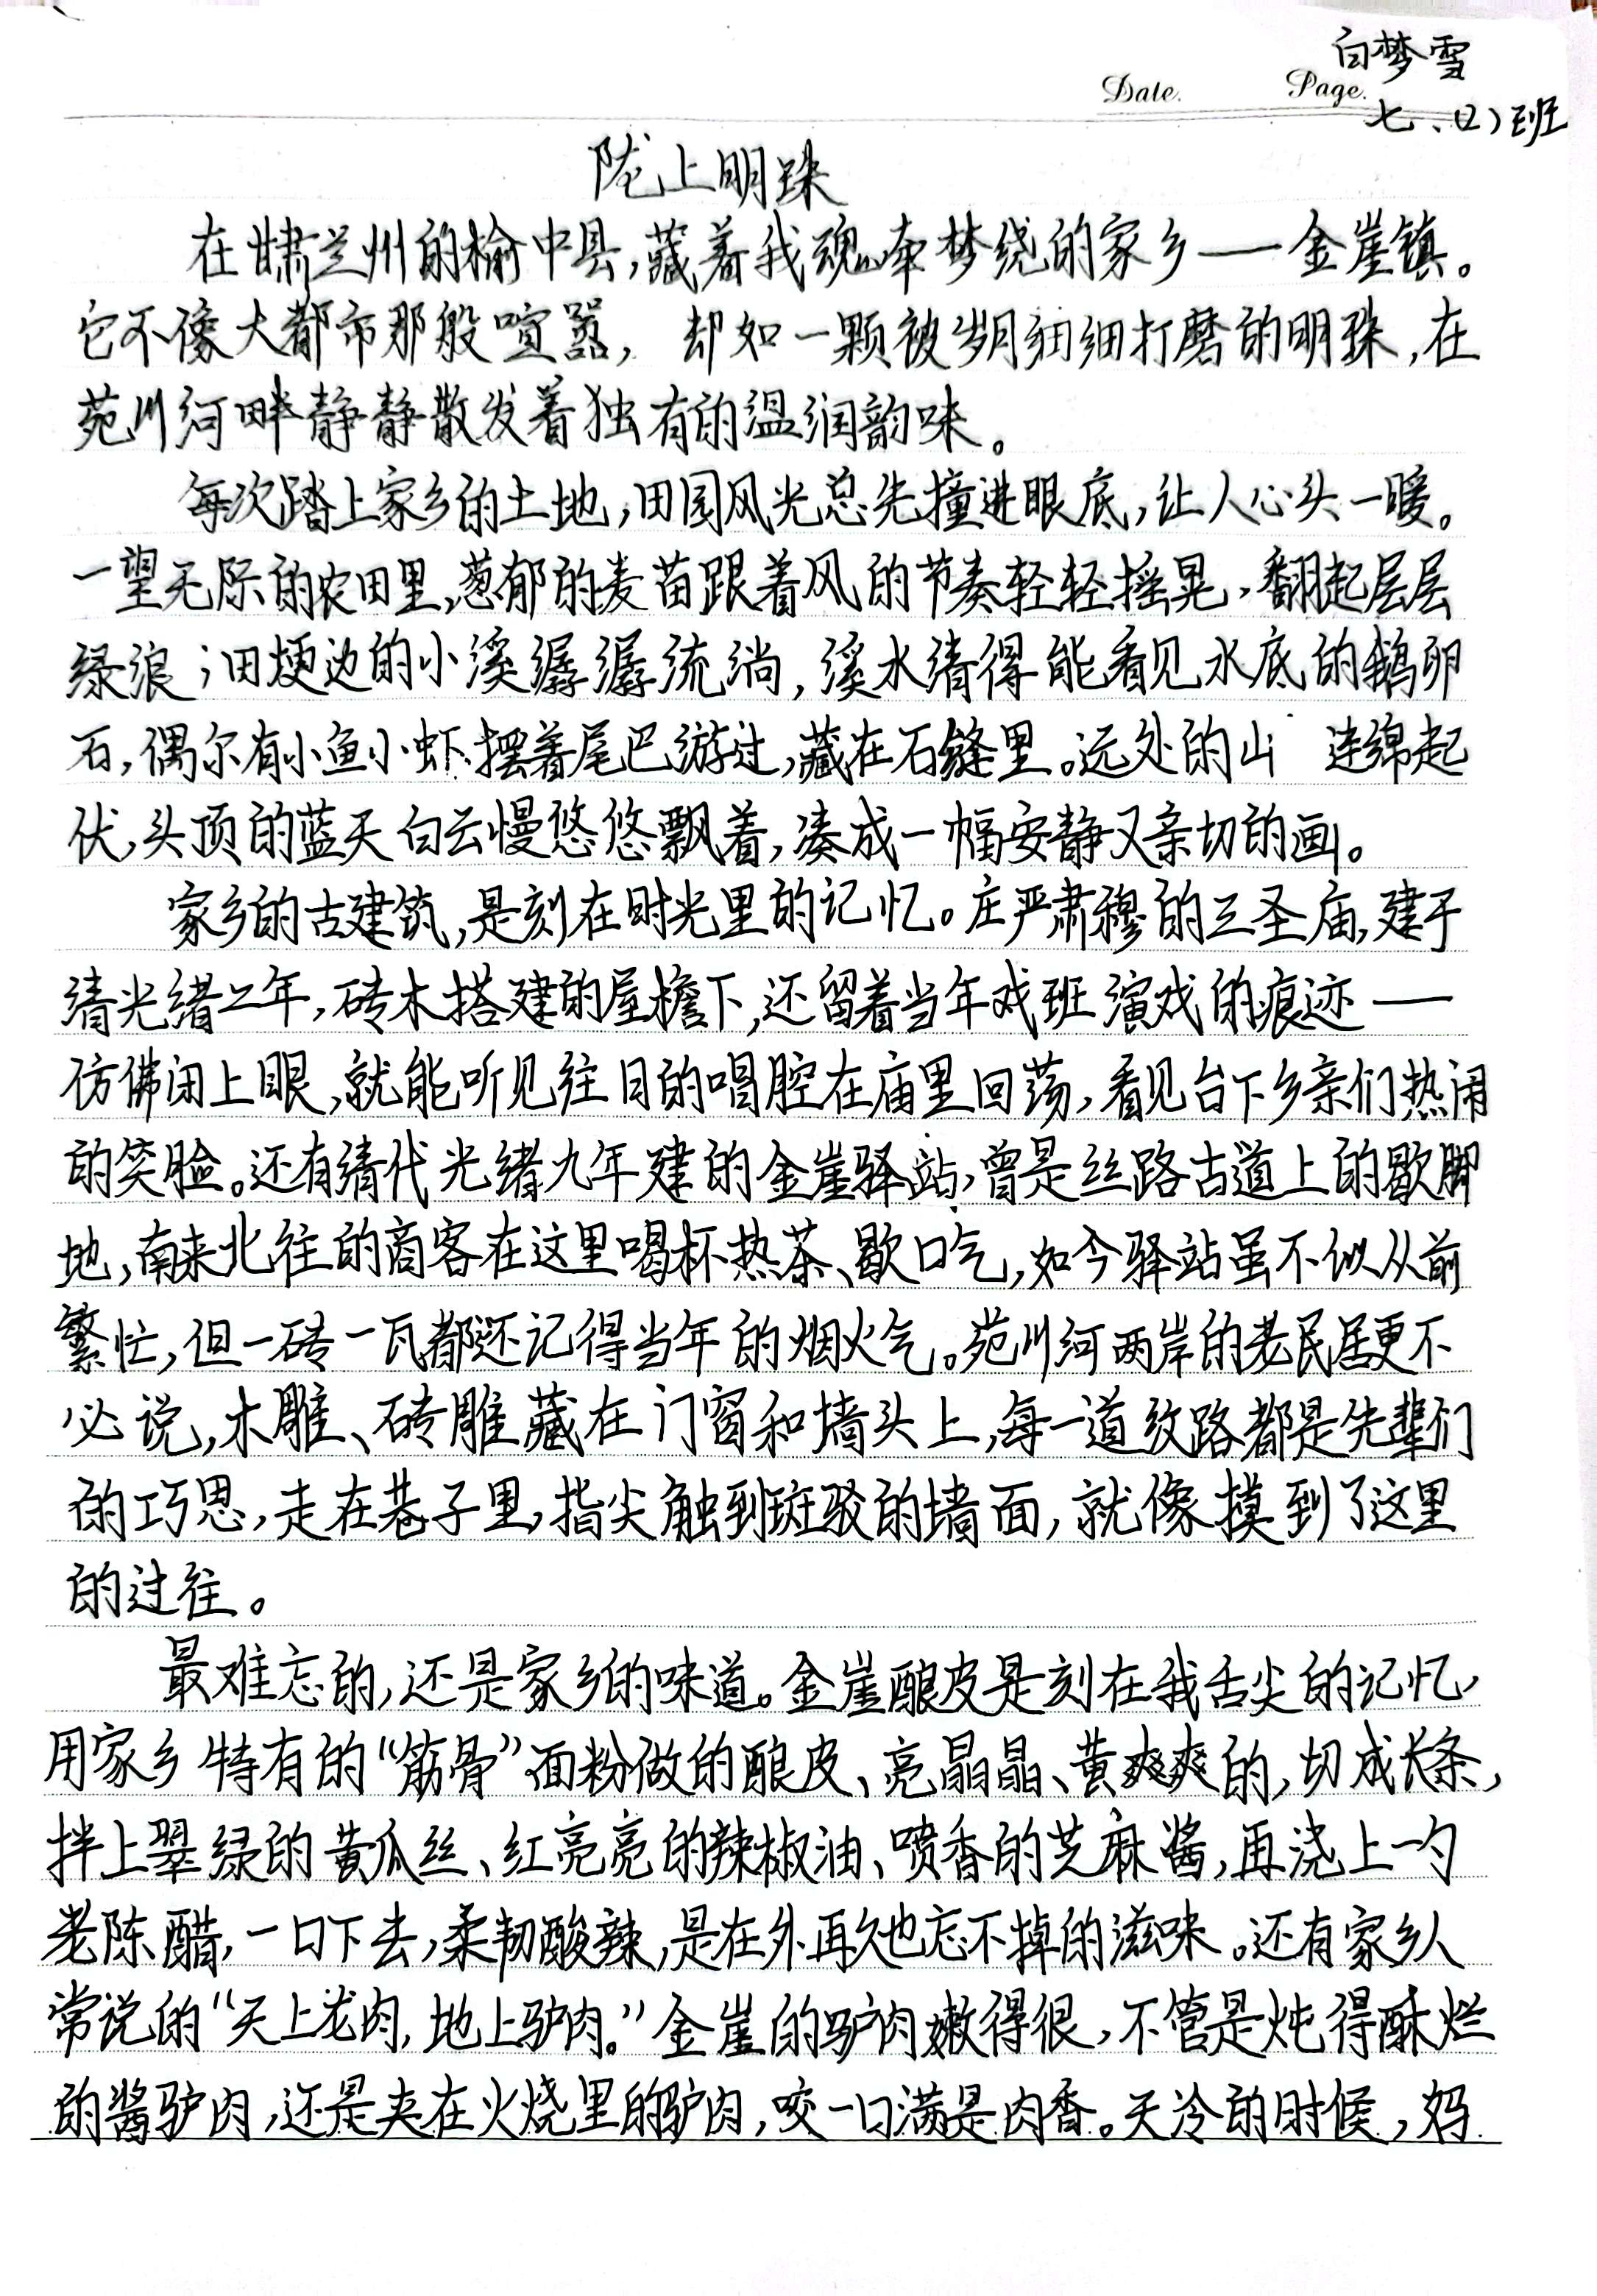 白梦雪
Date. Page.
七、(2)班
陇上明珠
在甘肃兰州的榆中县,藏着我魂牵梦绕的家乡——金崖镇。
它不像大都市那般喧嚣, 却如一颗被岁月细细打磨的明珠,在
苑川河畔静静散发着独有的温润韵味。
每次踏上家乡的土地,田园风光总先撞进眼底,让人心头一暖。
一望无际的农田里,葱郁的麦苗跟着风的节奏轻轻摇晃,翻起层层
绿浪;田埂边的小溪潺潺流淌,溪水清得能看见水底的鹅卵
石,偶尔有小鱼小虾摆着尾巴游过,藏在石缝里。远处的山 连绵起
伏,头顶的蓝天白云慢悠悠飘着,凑成一幅安静又亲切的画。
家乡的古建筑,是刻在时光里的记忆。庄严肃穆的三圣庙,建于
清光绪二年,砖木搭建的屋檐下,还留着当年戏班演戏的痕迹——
仿佛闭上眼,就能听见往日的唱腔在庙里回荡,看见台下乡亲们热闹
的笑脸。还有清代光绪九年建的金崖驿站,曾是丝路古道上的歇脚
地,南来北往的商客在这里喝杯热茶、歇口气,如今驿站虽不似从前
繁忙,但一砖一瓦都还记得当年的烟火气。苑川河两岸的老民居更不
必说,木雕、砖雕藏在门窗和墙头上,每一道纹路都是先辈们
的巧思,走在巷子里,指尖触到斑驳的墙面,就像摸到了这里
的过往。
最难忘的,还是家乡的味道。金崖酿皮是刻在我舌尖的记忆,
用家乡特有的“筋骨”面粉做的酿皮、亮晶晶、黄爽爽的,切成长条,
拌上翠绿的黄瓜丝、红亮亮的辣椒油、喷香的芝麻酱,再浇上一勺
老陈醋,一口下去,柔韧酸辣,是在外再久也忘不掉的滋味。还有家乡人
常说的“天上龙肉,地上驴肉。”金崖的驴肉嫩得很,不管是炖得酥烂
的酱驴肉,还是夹在火烧里的驴肉,咬一口满是肉香。天冷的时候,妈